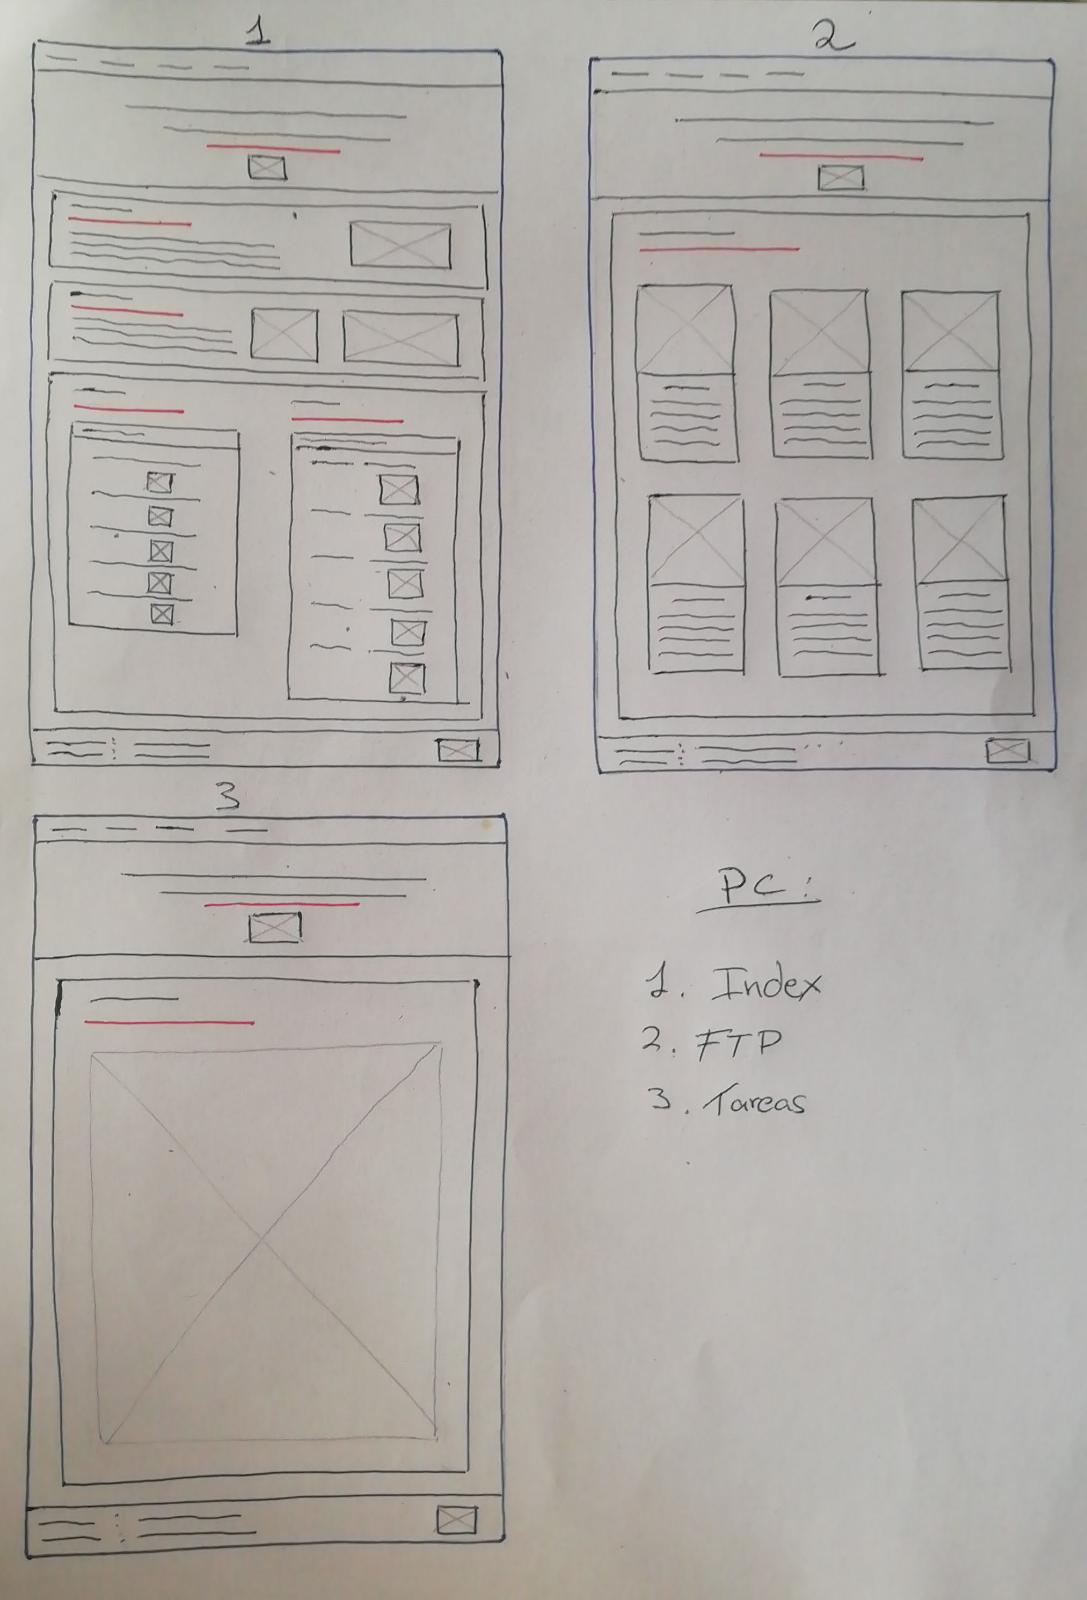 1
2
3
PC:
1. Index
2. FTP
3. Tareas